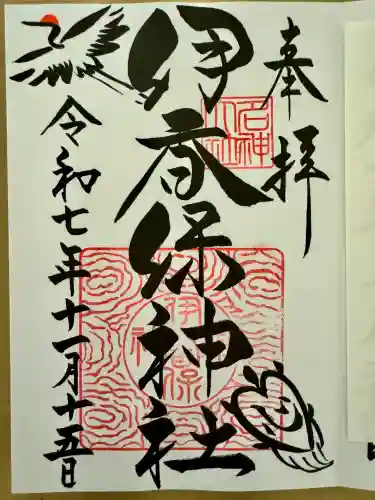 奉拝
伊香保神社
令和七年十一月十五日